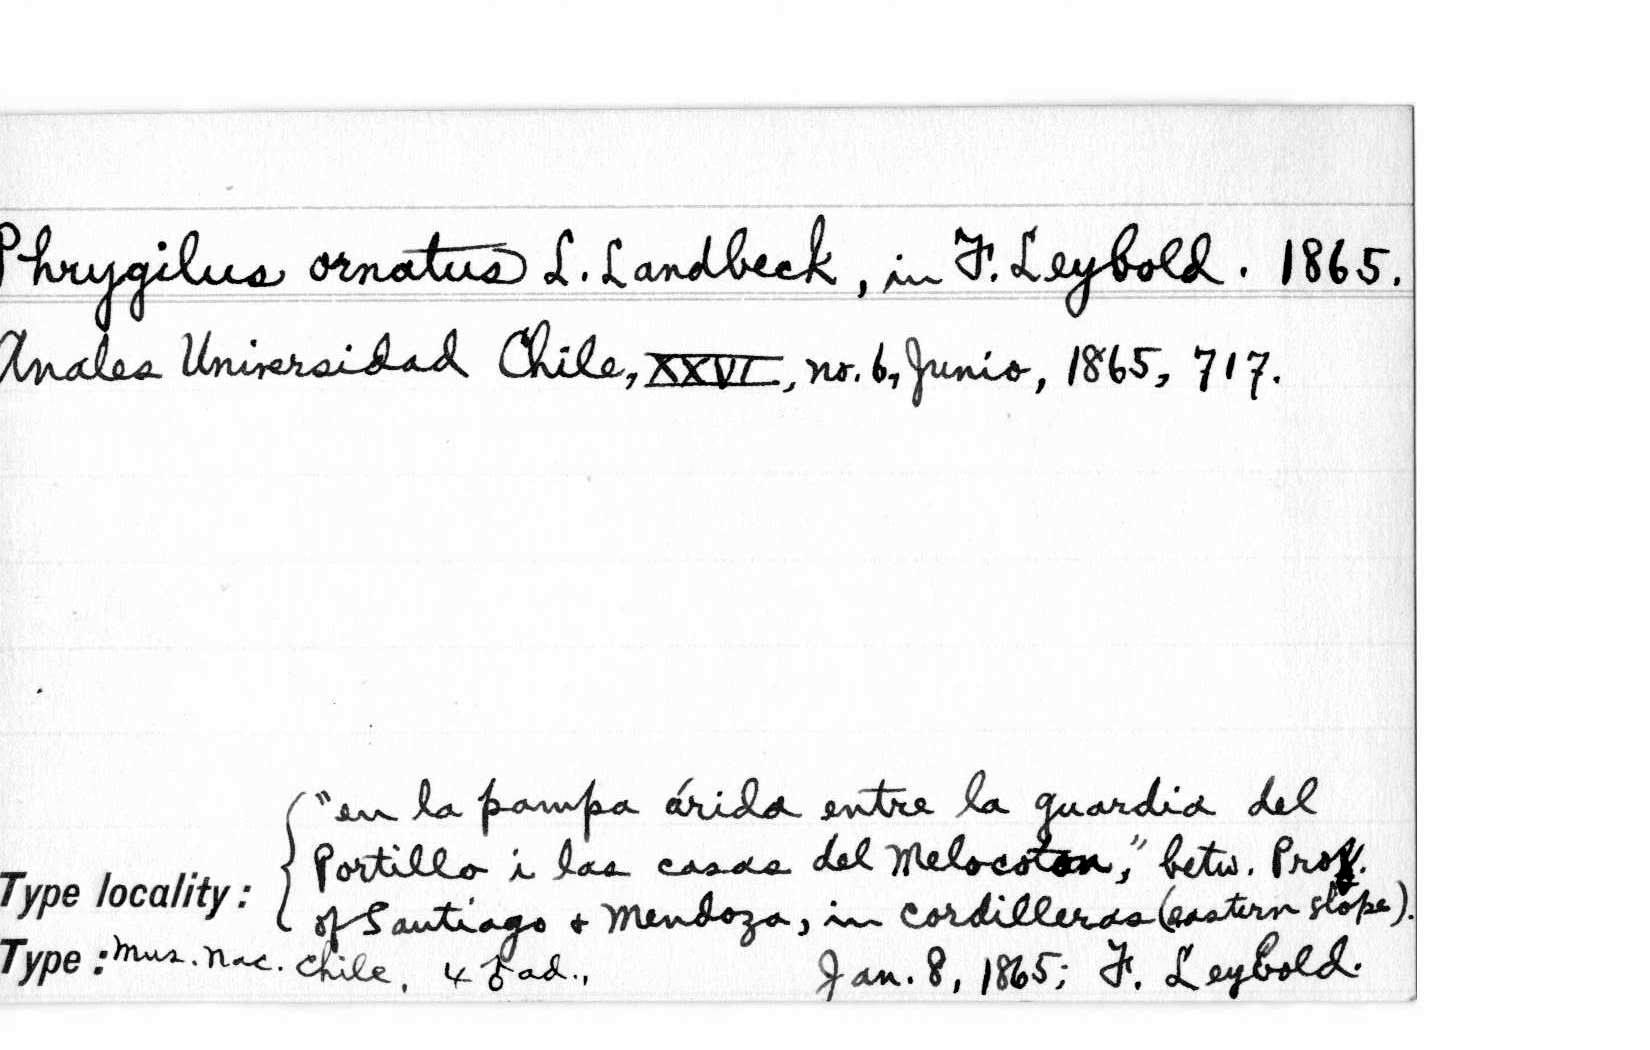 Phrygilus ornatus L. Landbeck, in F. Leybold. 1865.
Anales Universidad Chile, XXVI, no. 6, Junio, 1865, 717.
"en la pampa árida entre la guardia del
Portillo i las casas del Melocoton," betw. Prov.
Type locality: of Santiago & Mendoza, in cordilleras (eastern slope).
Type: Mus. Nac. Chile, 4 ad., Jan. 8, 1865; F. Leybold.